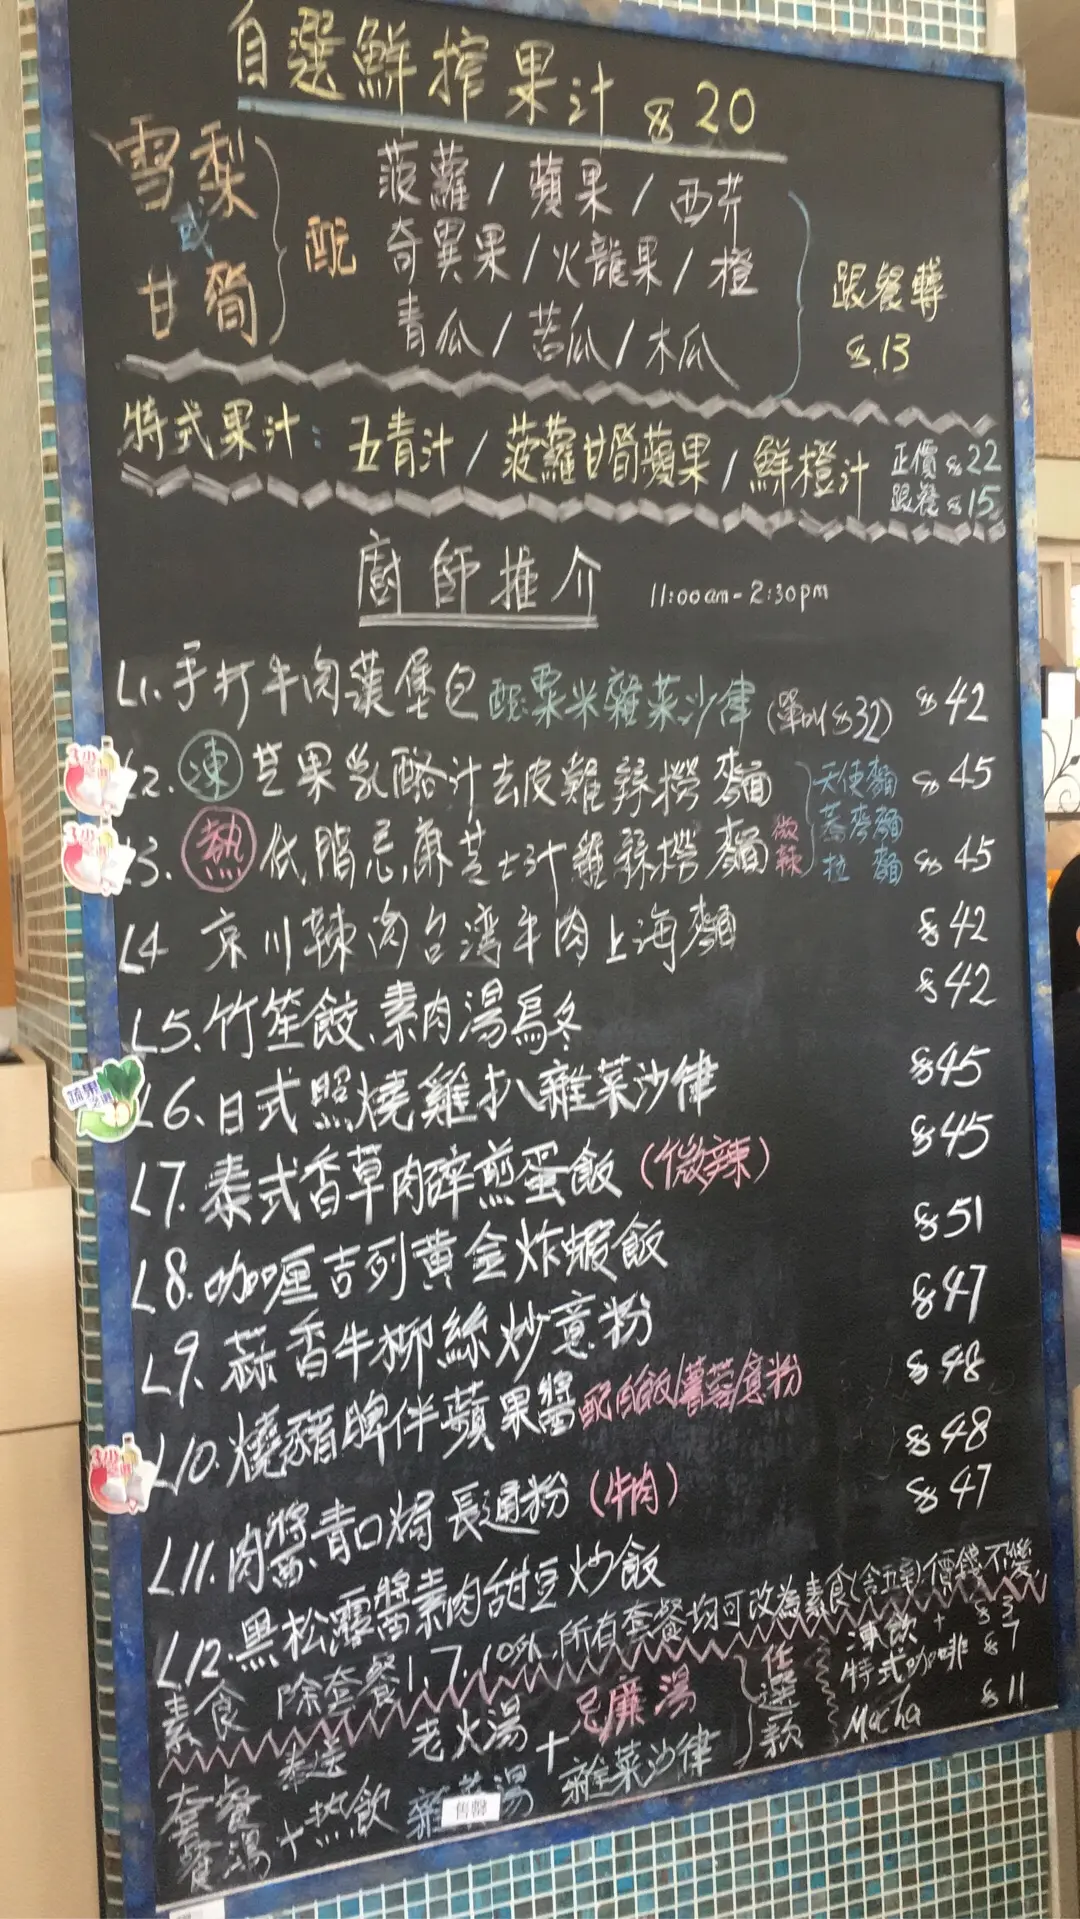 自選鮮搾果汁 $20
雪梨
或
甘筍
配
菠蘿/蘋果/西芹
奇異果/火龍果/橙
青瓜/苦瓜/木瓜
跟餐轉
$13
特式果汁: 五青汁/菠蘿甘筍蘋果/鮮橙汁
正價 $22
跟餐 $15
廚師推介 11:00am-2:30pm
L1. 手打牛肉漢堡包 配粟米雜菜沙律 (單叫$32) $42
L2. 凍 芒果乳酪汁去皮雞絲撈麵 $45
L3. 熱 低脂忌廉芝士汁雞絲撈麵 微辣 $45
天使麵
蕎麥麵
拉麵
L4 京川辣肉台湾牛肉上海麵 $42
L5. 竹笙餃、素肉湯烏冬 $42
L6. 日式照燒雞扒雜菜沙律 $45
L7. 泰式香草肉碎煎蛋飯 (微辣) $45
L8. 咖喱吉列黄金炸蝦飯 $51
L9. 蒜香牛柳絲炒意粉 $47
L10. 燒豬脾伴蘋果醬 配白飯/薯蓉/意粉 $48
L11. 肉醬青口焗長通粉 (牛肉) $48
L12. 黑松露醬素肉甜豆炒飯 $47
素食 除套餐1.7.10外,所有套餐均可改為素食(含五辛)價錢不變
套餐
奉送
餐湯+热飲
老火湯+忌廉湯
雜菜湯 雜菜沙律
售罄
任選一款
凍飲 + $3
特式咖啡 $7
Mocha $11
蔬果之選